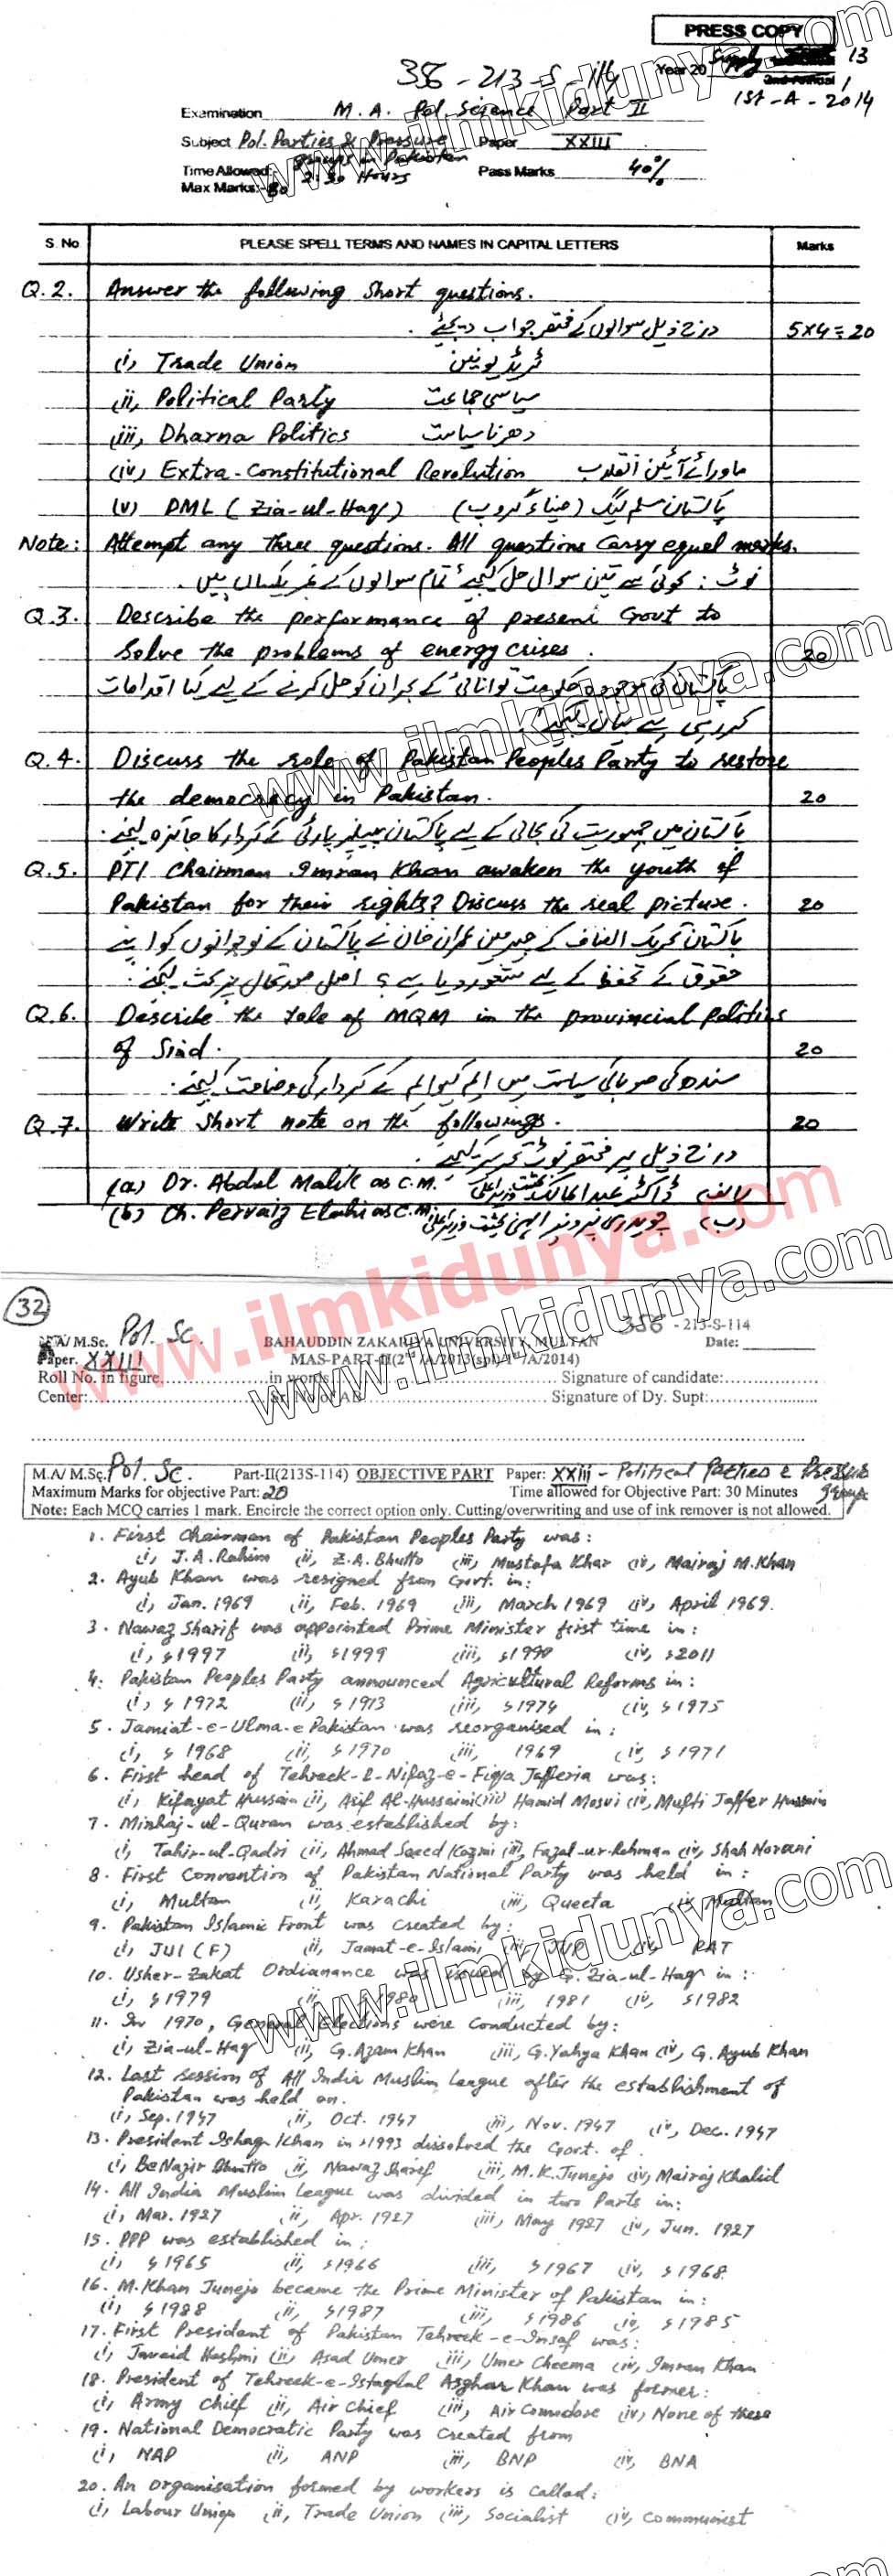 PRESS COPY
356-213-S-114
Year 20 Supply 13
1st-A-2014
Examination M.A. Pol. Science Part II
Subject Pol. Parties & Pressure Paper XXIII
groups in Pakistan
Time Allowed:- 2:30 Hours Pass Marks 40%
Max Marks:- 80
S. No PLEASE SPELL TERMS AND NAMES IN CAPITAL LETTERS Marks
Q.2. Answer the following short questions.
درج ذیل سوالوں کے مختصر جواب دیجئے . 5x4=20
(i) Trade Union ٹریڈ یونین
(ii) Political Party سیاسی جماعت
(iii) Dharna Politics دھرنا سیاست
(iv) Extra-Constitutional Revolution ماورائے آئین انقلاب
(v) PML (Zia-ul-Haq) پاکستان مسلم لیگ (ضیاء گروپ)
Note: Attempt any three questions. All questions carry equal marks.
نوٹ: کوئی سے تین سوال حل کیجئے تمام سوالوں کے نمبر یکساں ہیں.
Q.3. Describe the performance of present Govt to
solve the problems of energy crises. 20
پاکستان کی موجودہ حکومت توانائی کے بحران کو حل کرنے کے لیے کیا اقدامات
کر رہی ہے بیان کیجئے
Q.4. Discuss the role of Pakistan Peoples Party to restore
the democracy in Pakistan. 20
پاکستان میں جمہوریت کی بحالی کے لیے پاکستان پیپلز پارٹی کے کردار کا جائزہ لیجئے.
Q.5. PTI Chairman Imran Khan awaken the youth of
Pakistan for their rights? Discuss the real picture. 20
پاکستان تحریک انصاف کے چیرمین عمران خان نے پاکستان کے نوجوانوں کو اپنے
حقوق کے تحفظ کے لیے شعور دیا ہے؟ اصل صورتحال پر بحث کیجئے.
Q.6. Describe the role of MQM in the provincial politics
of Sind. 20
سندھ کی صوبائی سیاست میں ایم کیو ایم کے کردار کی وضاحت کیجئے.
Q.7. Write short note on the followings. 20
درج ذیل پر مختصر نوٹ تحریر کیجئے.
(a) Dr. Abdul Malik as C.M. (الف) ڈاکٹر عبدالمالک بحیثیت وزیر اعلیٰ
(b) Ch. Pervaiz Elahi as C.M. (ب) چوہدری پرویز الہیٰ بحیثیت وزیر اعلیٰ
www.ilmkidunya.com
32
356-213-S-114
M.A/M.Sc. Pol. Sc. BAHAUDDIN ZAKARIYA UNIVERSITY, MULTAN Date:
Paper. XXIII MAS-PART-II(2nd/A/2013(spl)/1st/A/2014)
Roll No. in figure in words Signature of candidate:
Center: Sr. No of AB Signature of Dy. Supt:
M.A/M.Sc. Pol. Sc. Part-II(213S-114) OBJECTIVE PART Paper: XXIII - Political Parties & Pressure
groups
Maximum Marks for objective Part: 20 Time allowed for Objective Part: 30 Minutes
Note: Each MCQ carries 1 mark. Encircle the correct option only. Cutting/overwriting and use of ink remover is not allowed.
1. First Chairman of Pakistan Peoples Party was:
(i) J.A. Rahim (ii) Z.A. Bhutto (iii) Mustafa Khar (iv) Mairaj M. Khan
2. Ayub Khan was resigned from Govt. in:
(i) Jan. 1969 (ii) Feb. 1969 (iii) March 1969 (iv) April 1969.
3. Nawaz Sharif was appointed Prime Minister first time in:
(i) s1997 (ii) s1999 (iii) s1990 (iv) s2011
4. Pakistan Peoples Party announced Agricultural Reforms in:
(i) s1972 (ii) s1973 (iii) s1974 (iv) s1975
5. Jamiat-e-Ulma-e Pakistan was reorganised in:
(i) s1968 (ii) s1970 (iii) 1969 (iv) s1971
6. First head of Tehreek-e-Nifaz-e-Fiqa Jafferia was:
(i) Kifayat Hussain (ii) Arif Al-Hussaini (iii) Hamid Mosvi (iv) Mufti Jaffer Hussain
7. Minhaj-ul-Quran was established by:
(i) Tahir-ul-Qadri (ii) Ahmad Saeed Kazmi (iii) Fazal-ur-Rehman (iv) Shah Norani
8. First Convention of Pakistan National Party was held in:
(i) Multan (ii) Karachi (iii) Queeta (iv) Multan
9. Pakistan Islamic Front was created by:
(i) JUI (F) (ii) Jamat-e-Islami (iii) JUP (iv) PAT
10. Usher-Zakat Ordianance was issued by G. Zia-ul-Haq in:
(i) s1979 (ii) s1980 (iii) 1981 (iv) s1982
11. In 1970, General Elections were conducted by:
(i) Zia-ul-Haq (ii) G. Azam Khan (iii) G. Yahya Khan (iv) G. Ayub Khan
12. Last session of All India Muslim League after the establishment of
Pakistan was held on.
(i) Sep. 1947 (ii) Oct. 1947 (iii) Nov. 1947 (iv) Dec. 1947
13. President Ishaq Khan in s1993 dissolved the Govt. of.
(i) BeNazir Bhutto (ii) Nawaz Sharif (iii) M.K. Junejo (iv) Mairaj Khalid
14. All India Muslim League was divided in two Parts in:
(i) Mar. 1927 (ii) Apr. 1927 (iii) May 1927 (iv) Jun. 1927
15. PPP was established in:
(i) s1965 (ii) s1966 (iii) s1967 (iv) s1968.
16. M. Khan Junejo became the Prime Minister of Pakistan in:
(i) s1988 (ii) s1987 (iii) s1986 (iv) s1985
17. First President of Pakistan Tehreek-e-Insaf was:
(i) Javaid Hashmi (ii) Asad Umer (iii) Umer Cheema (iv) Imran Khan
18. President of Tehreek-e-Istaqlal Asghar Khan was former:
(i) Army Chief (ii) Air Chief (iii) Air Comodore (iv) None of these
19. National Democratic Party was created from
(i) NAP (ii) ANP (iii) BNP (iv) BNA
20. An organisation formed by workers is called:
(i) Labour Union (ii) Trade Union (iii) Socialist (iv) Communist